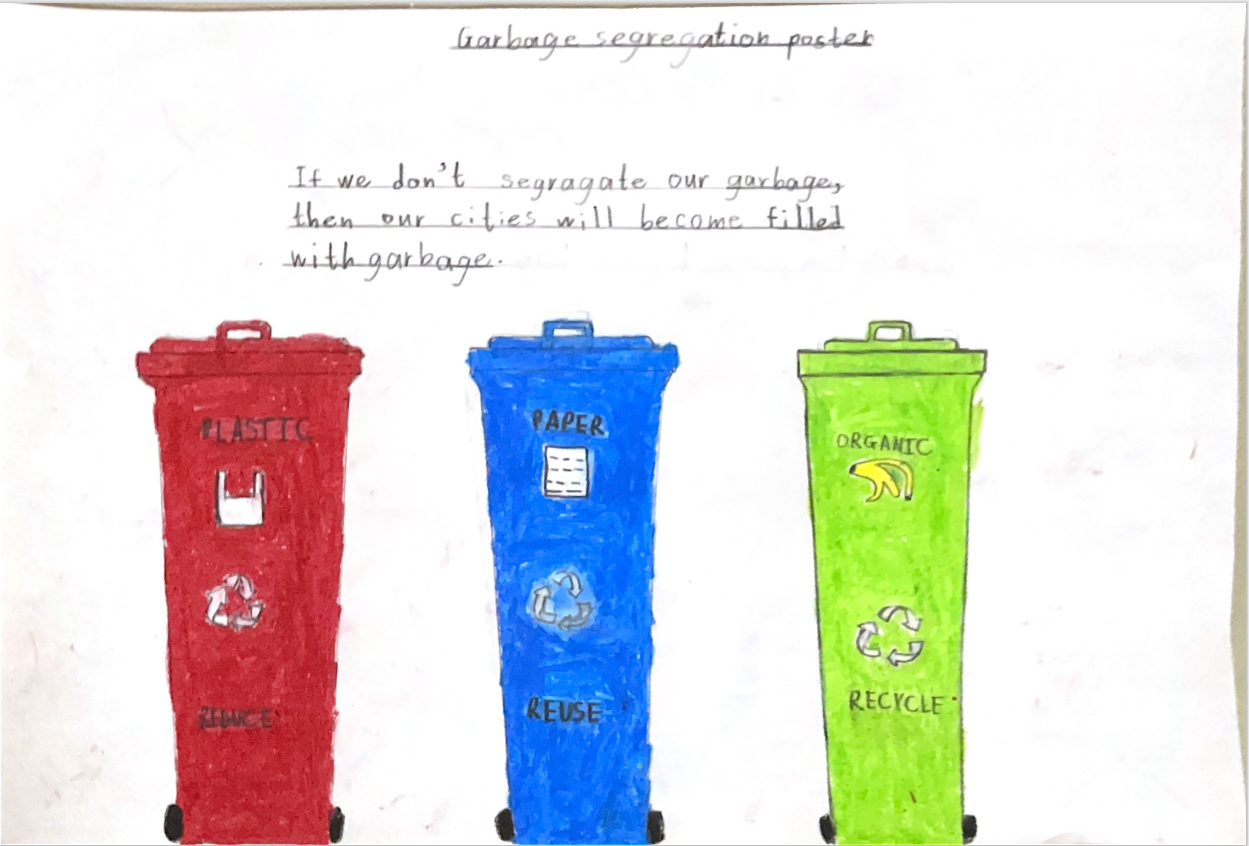 Garbage segregation poster
If we don't segragate our garbage,
then our cities will become filled
with garbage.
PLASTIC
PAPER
ORGANIC
REDUCE
REUSE
RECYCLE